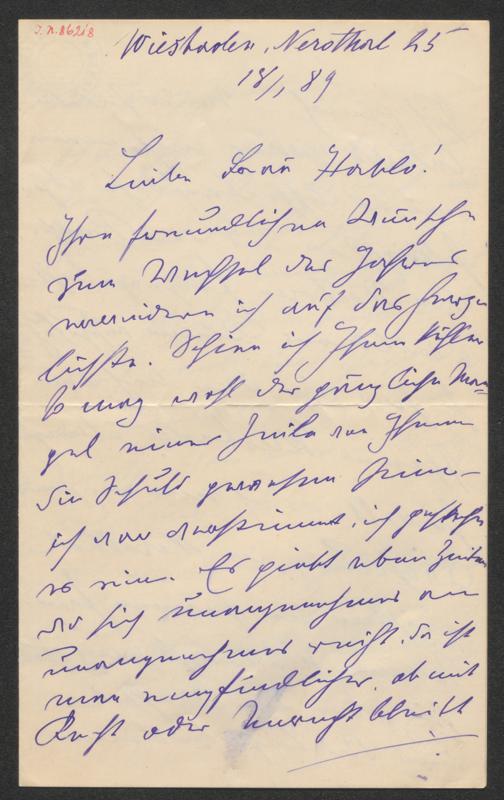 I.N. 86218
Wiesbaden, Nerothal 25
18/1 89
Lieber Baron Horklo!
Ihre freundlichen Wünsche
zum Wechsel des Jahres
erwiedere ich auf das herz
lichste. Schien ich Ihnen kühl
so mag wohl der gänzliche Man=
gel einer Zeile von Ihnen
die Schuld gewesen sein –
ich war verstimmt, ich gestehe
es ein. Es giebt eben Zeiten
wo sich Unangenehmes an
Unangenehmes reiht, da ist
man empfindlicher, ob mit
Recht oder Unrecht bleibt